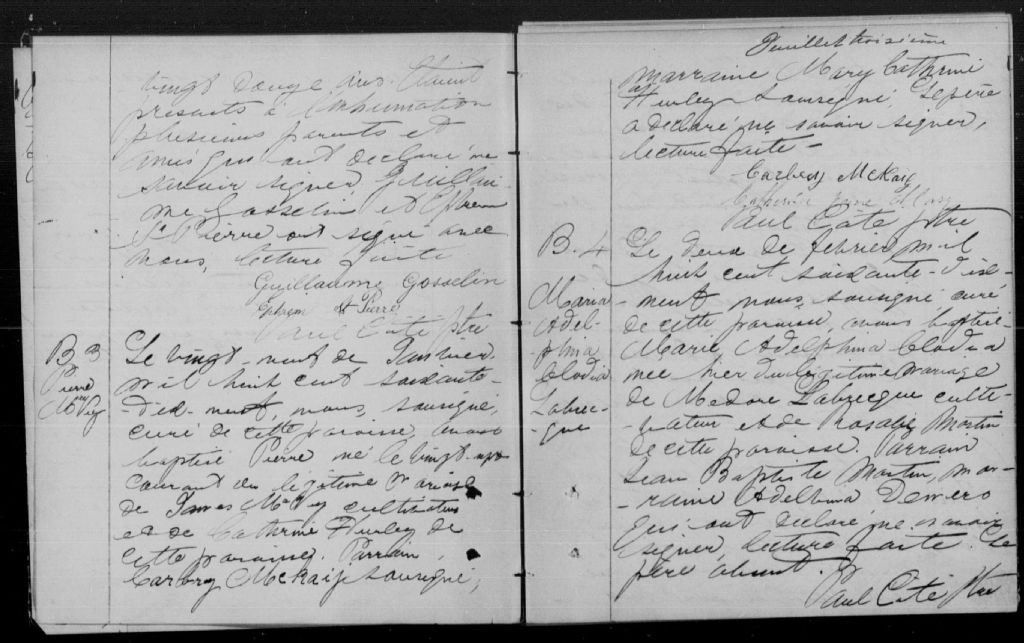 vingt douze ans. Etaient
présents à l'inhumation
plusieurs parents et
amis qui ont declaré ne
savoir signer, Guillau-
me Gosselin et Ephrem
St Pierre ont signé avec
nous, lecture faite
Guillaume Gosselin
Ephrem St Pierre
Paul Côté Ptre
B 3
Pierre
McVey
Le vingt neuf de Janvier
mil huit cent soixante-
-dix-neuf, nous, sousigné,
curé de cette paroisse, avons
baptisé Pierre né le vingt
courant du légitime mariage
de James McVey cultivateur
et de Cathrine Hurley de
cette paroisse. Parrain,
Carbry McKay sousigné,
Feuillet troisième
marraine Mary Cathrine
Hurley sousigné, Le père
a declaré ne savoir signer,
lecture faite -
Carbery McKay
Catherine Jane
Paul Côté Ptre
B. 4
Maria
Adel-
-phina
Clodia
Labrec-
-que
Le deux de fevrier mil
huit cent soixante-dix-
-neuf nous, sousigné curé
de cette paroisse, avons baptisé
Marie Adelphina Clodia
née hier du légitime mariage
de Medore Labrecque culti-
-vateur et de Rosalie Martin
de cette paroisse. Parrain
Jean Baptiste Martin, mar-
-raine Adelphina
qui ont declaré ne savoir
signer, lecture faite. Le
père absent.
Paul Côté Ptre